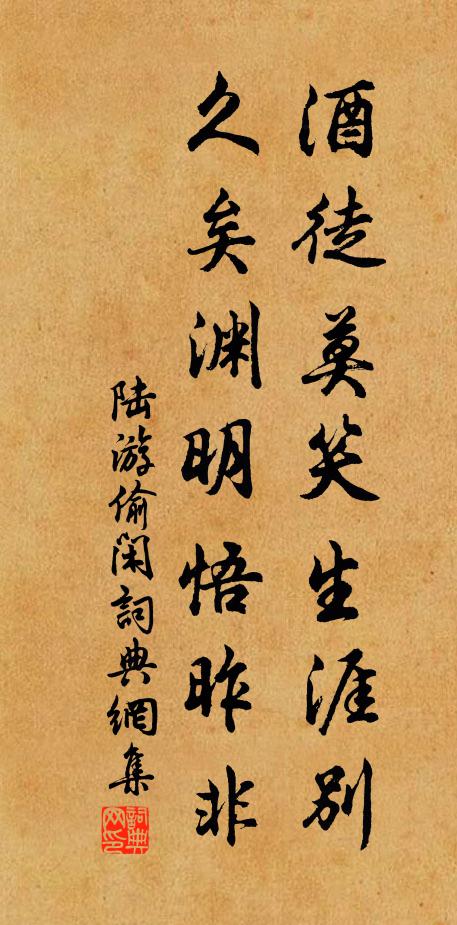 酒徒莫笑生涯别
久矣渊明悟昨非
陆游偷闲詞典網集
詞典
网印